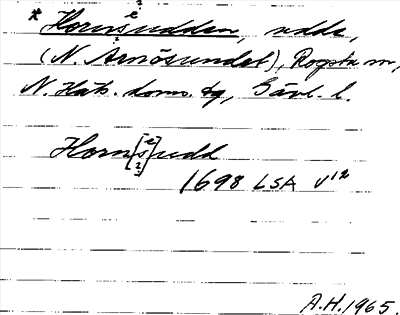 * Hornsudden, udde,
(N. Arnösundet), Rogsta sn,
N. Häls. doms. tg, Gävl. l.
Horn[s]udd
1698 LSA U12
A.H. 1965.